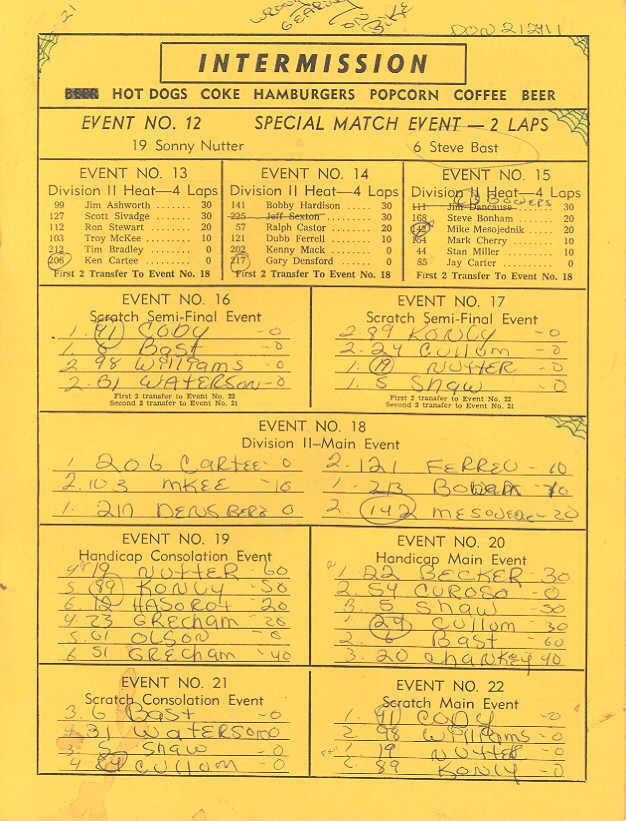 GEARING
DON 212411
INTERMISSION
BEER HOT DOGS COKE HAMBURGERS POPCORN COFFEE BEER
EVENT NO. 12 SPECIAL MATCH EVENT — 2 LAPS
19 Sonny Nutter 6 Steve Bast
EVENT NO. 13
Division II Heat—4 Laps
99 Jim Ashworth ....... 30
127 Scott Sivadge ....... 30
112 Ron Stewart ....... 20
103 Troy McKee ....... 10
212 Tim Bradley ....... 0
206 Ken Cartee ....... 0
First 2 Transfer To Event No. 18
EVENT NO. 14
Division II Heat—4 Laps
141 Bobby Hardison ..... 30
225 Jeff Sexton ..... 30
57 Ralph Castor ..... 20
121 Dubb Ferrell ..... 10
202 Kenny Mack ..... 0
217 Gary Densford ..... 0
First 2 Transfer To Event No. 18
EVENT NO. 15
Division II Heat—4 Laps
BOWERS
111 Jim Dancause ..... 30
168 Steve Bonham ..... 20
142 Mike Mesojednik ..... 20
164 Mark Cherry ..... 10
44 Stan Miller ..... 10
85 Jay Carter ..... 0
First 2 Transfer To Event No. 18
EVENT NO. 16
Scratch Semi-Final Event
1. 91 CODY -0
1. 6 Bast -0
2. 98 Williams -0
2. 31 WATERSON -0
First 2 transfer to Event No. 22
Second 2 transfer to Event No. 21
EVENT NO. 17
Scratch Semi-Final Event
2. 89 KONLY -0
2. 24 Cullum -0
1. 19 NUTTER -0
1. 5 Shaw -0
First 2 transfer to Event No. 22
Second 2 transfer to Event No. 21
EVENT NO. 18
Division II—Main Event
1. 206 Cartee 0
2. 103 MKEE -10
1. 217 DENSBERG 0
2. 121 FERREU - 10
1. 213
2. 142 MESOJEDC -20
EVENT NO. 19
Handicap Consolation Event
4. 19 NUTTER - 60
5. 89 KONLY - 50
6. 12 HASOROT - 20
4. 23 GRECHAM - 20
5. 61 OLSON - 0
6. 51 GRECHAM - 40
EVENT NO. 20
Handicap Main Event
1. 22 BECKER - 30
2. 54 CUROSO - 0
3. 5 Shaw - 50
1. 24 Cullum - 30
2. 6 Bast - 60
3. 20 SHANKEY 40
EVENT NO. 21
Scratch Consolation Event
3. 6 Bast -0
4. 31 WATERSON 0
3. 5 Shaw -0
4. 24 Cullum -0
EVENT NO. 22
Scratch Main Event
1. 91 CODY -0
2. 98 Williams -0
1. 19 NUTTER -0
2. 89 KONLY -0